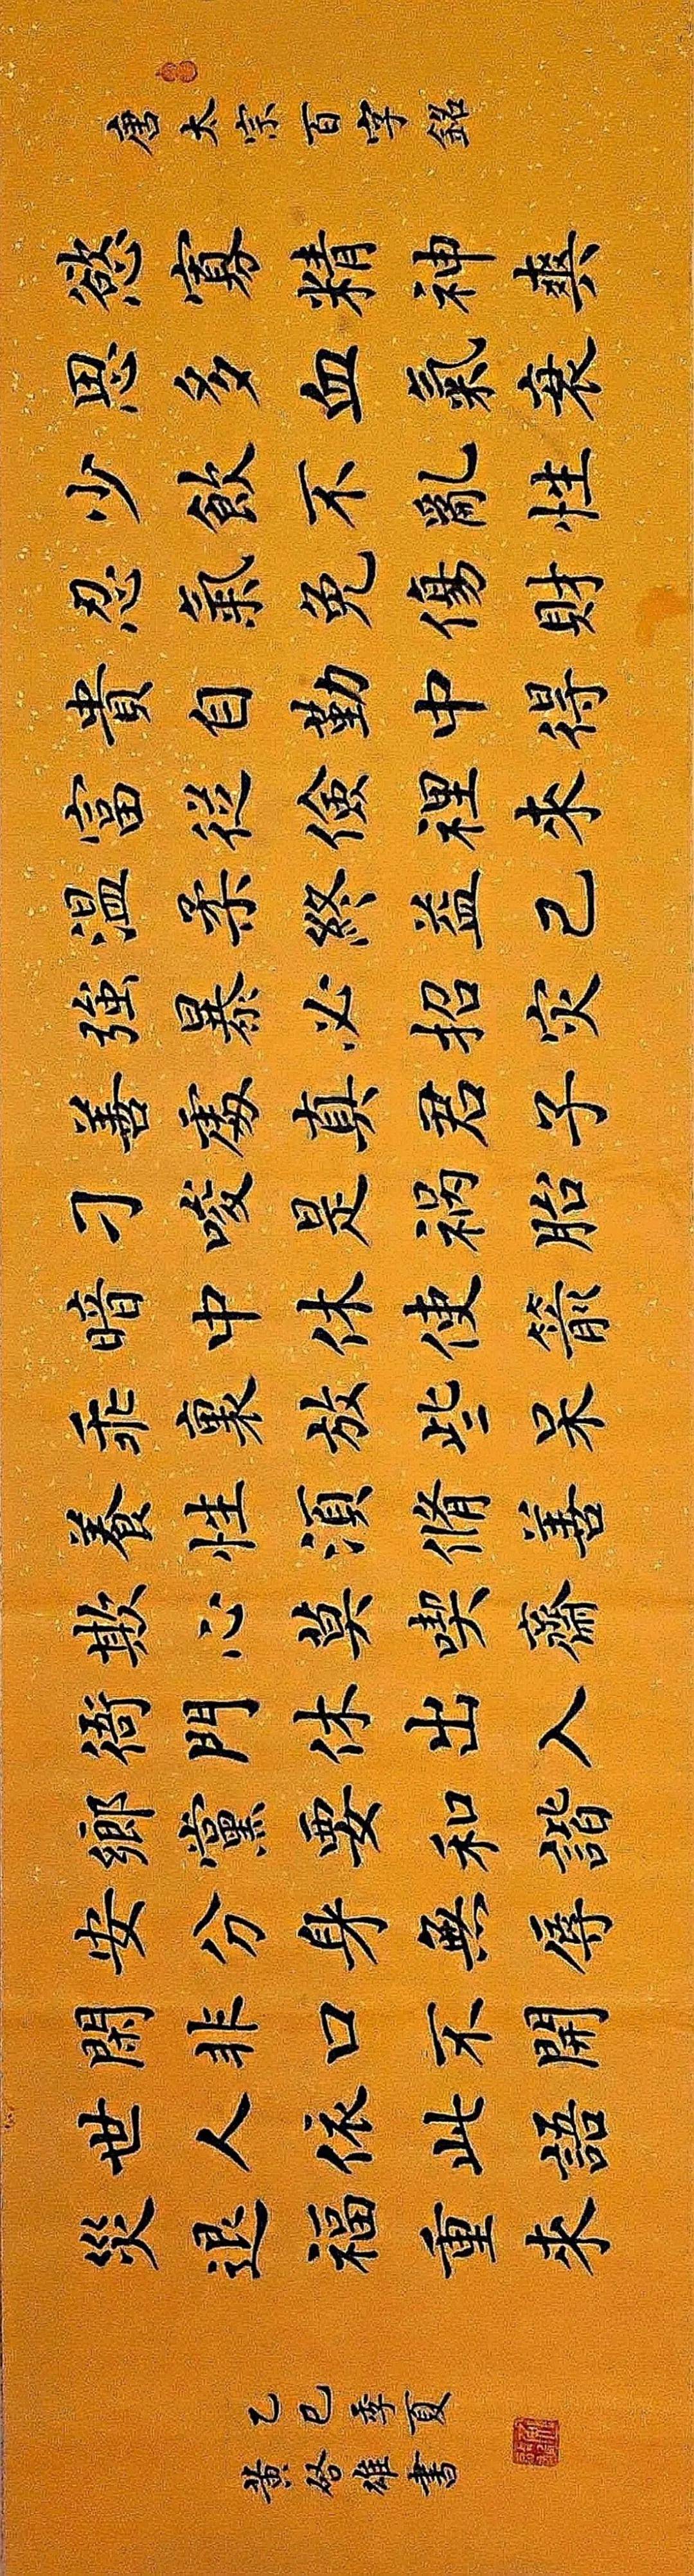 唐太宗百字銘
慾寡精神爽
思多血氣衰
少飲不亂性
忍氣免傷財
貴自勤中得
富從儉裡來
溫柔終益己
強暴必招灾
善處真君子
刁唆是祸胎
暗中休使箭
乖裏放些呆
養性須脩善
欺心莫喫齋
衙門休出入
鄉黨要和諧
安分身無辱
閑非口不開
世人依此語
災退福重來
乙巳季夏
黄雄書